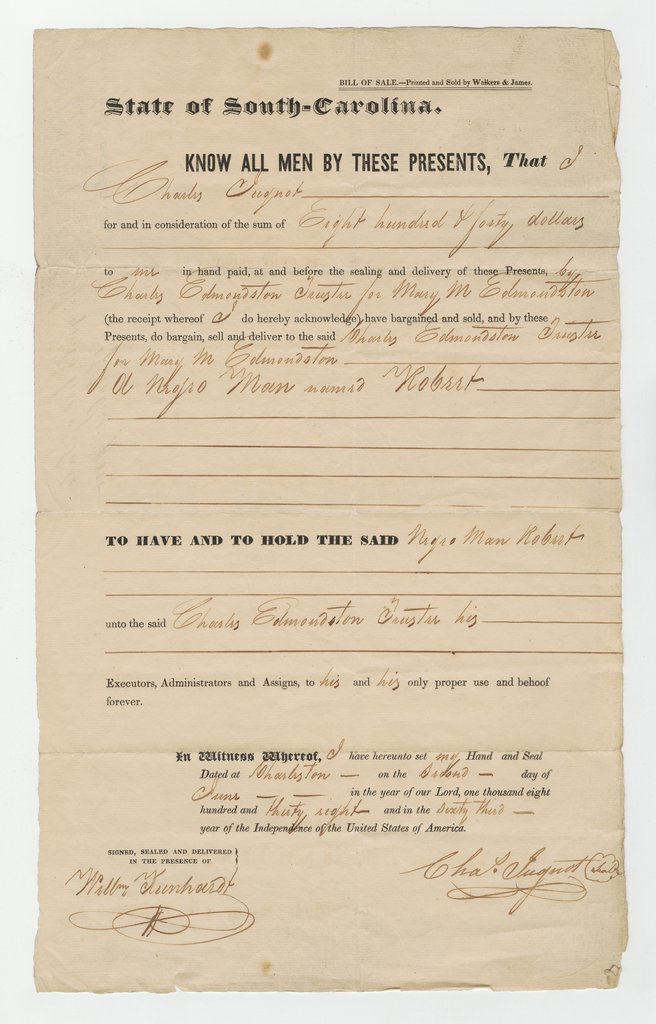 BILL OF SALE.—Printed and Sold by Walkers & James.
State of South-Carolina.
KNOW ALL MEN BY THESE PRESENTS, That I
Charles Juquot
for and in consideration of the sum of Eight hundred & forty dollars
to me in hand paid, at and before the sealing and delivery of these Presents, by
Charles Edmondston Trustee for Mary M Edmondston
(the receipt whereof I do hereby acknowledge) have bargained and sold, and by these
Presents, do bargain, sell and deliver to the said Charles Edmondston Trustee
for Mary M Edmondston
A Negro Man named Robert
TO HAVE AND TO HOLD THE SAID Negro Man Robert
unto the said Charles Edmondston Trustee his
Executors, Administrators and Assigns, to his and his only proper use and behoof
forever.
In Witness Whereof, I have hereunto set my Hand and Seal
Dated at Charleston — on the Second — day of
June — — in the year of our Lord, one thousand eight
hundred and thirty eight and in the sixty third —
year of the Independence of the United States of America.
SIGNED, SEALED AND DELIVERED
IN THE PRESENCE OF
Chas. Juquot
Kunhardt